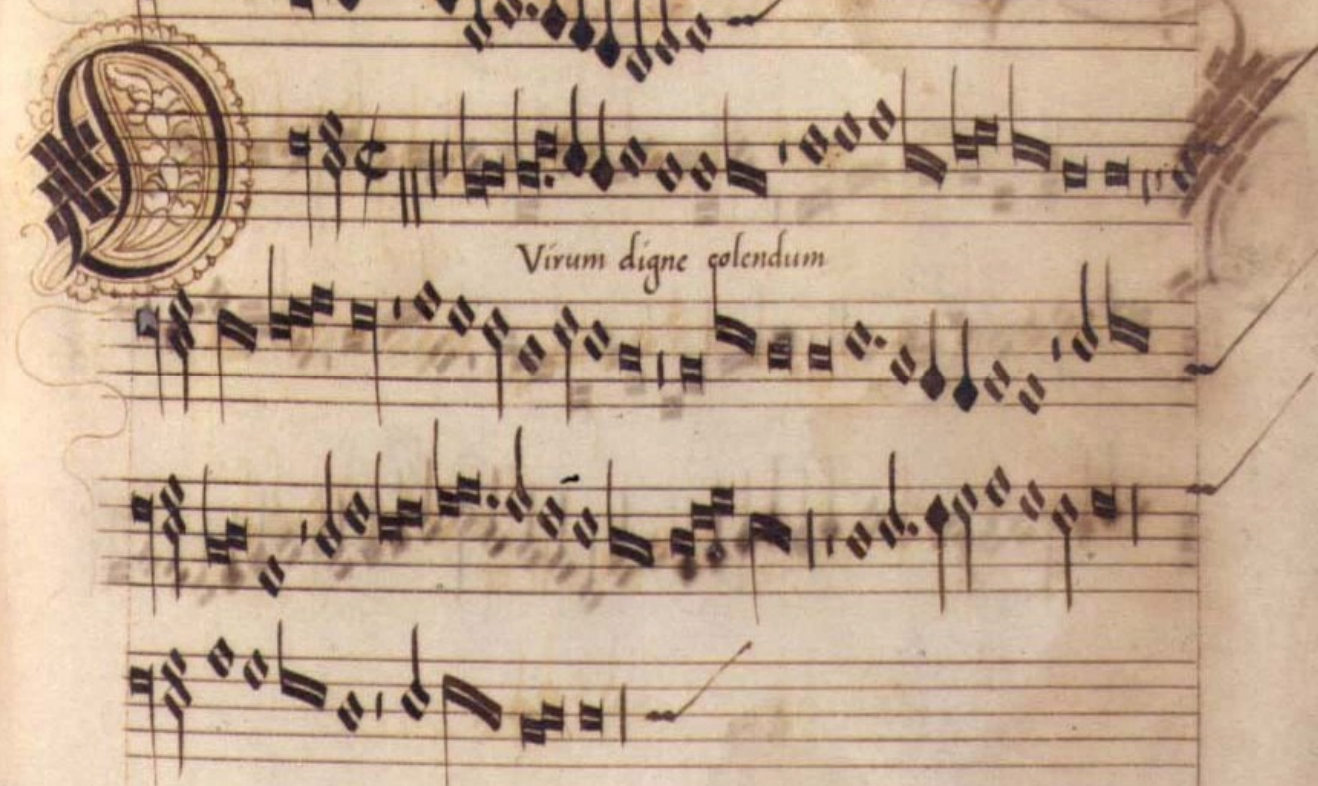 Virum digne colendum